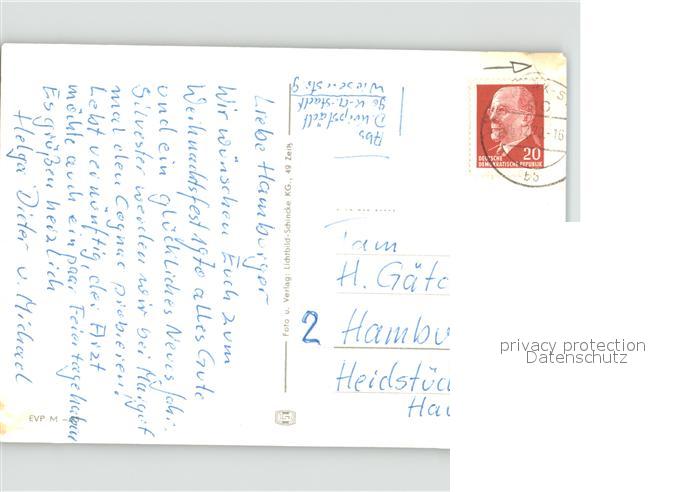 Liebe Hamburger
Wir wünschen Euch zum
Weihnachtsfest 1970 alles Gute
und ein glückliches Neues Jahr.
Silvester werden wir bei Margot
mal den Cognac probieren!
Lebt vernünftig, der Arzt
möchte auch ein paar Feiertage haben
Es grüßen herzlich
Helga Dieter u. Michael
EVP M
Foto u. Verlag: Lichtbild-Schincke KG., 49 Zeitz
Abs
Karl-Marx-Stadt
DEUTSCHE
DEMOKRATISCHE REPUBLIK
20
Fam
H. Gätc
2 Hambu
Heidstüc
Hau
privacy protection
Datenschutz